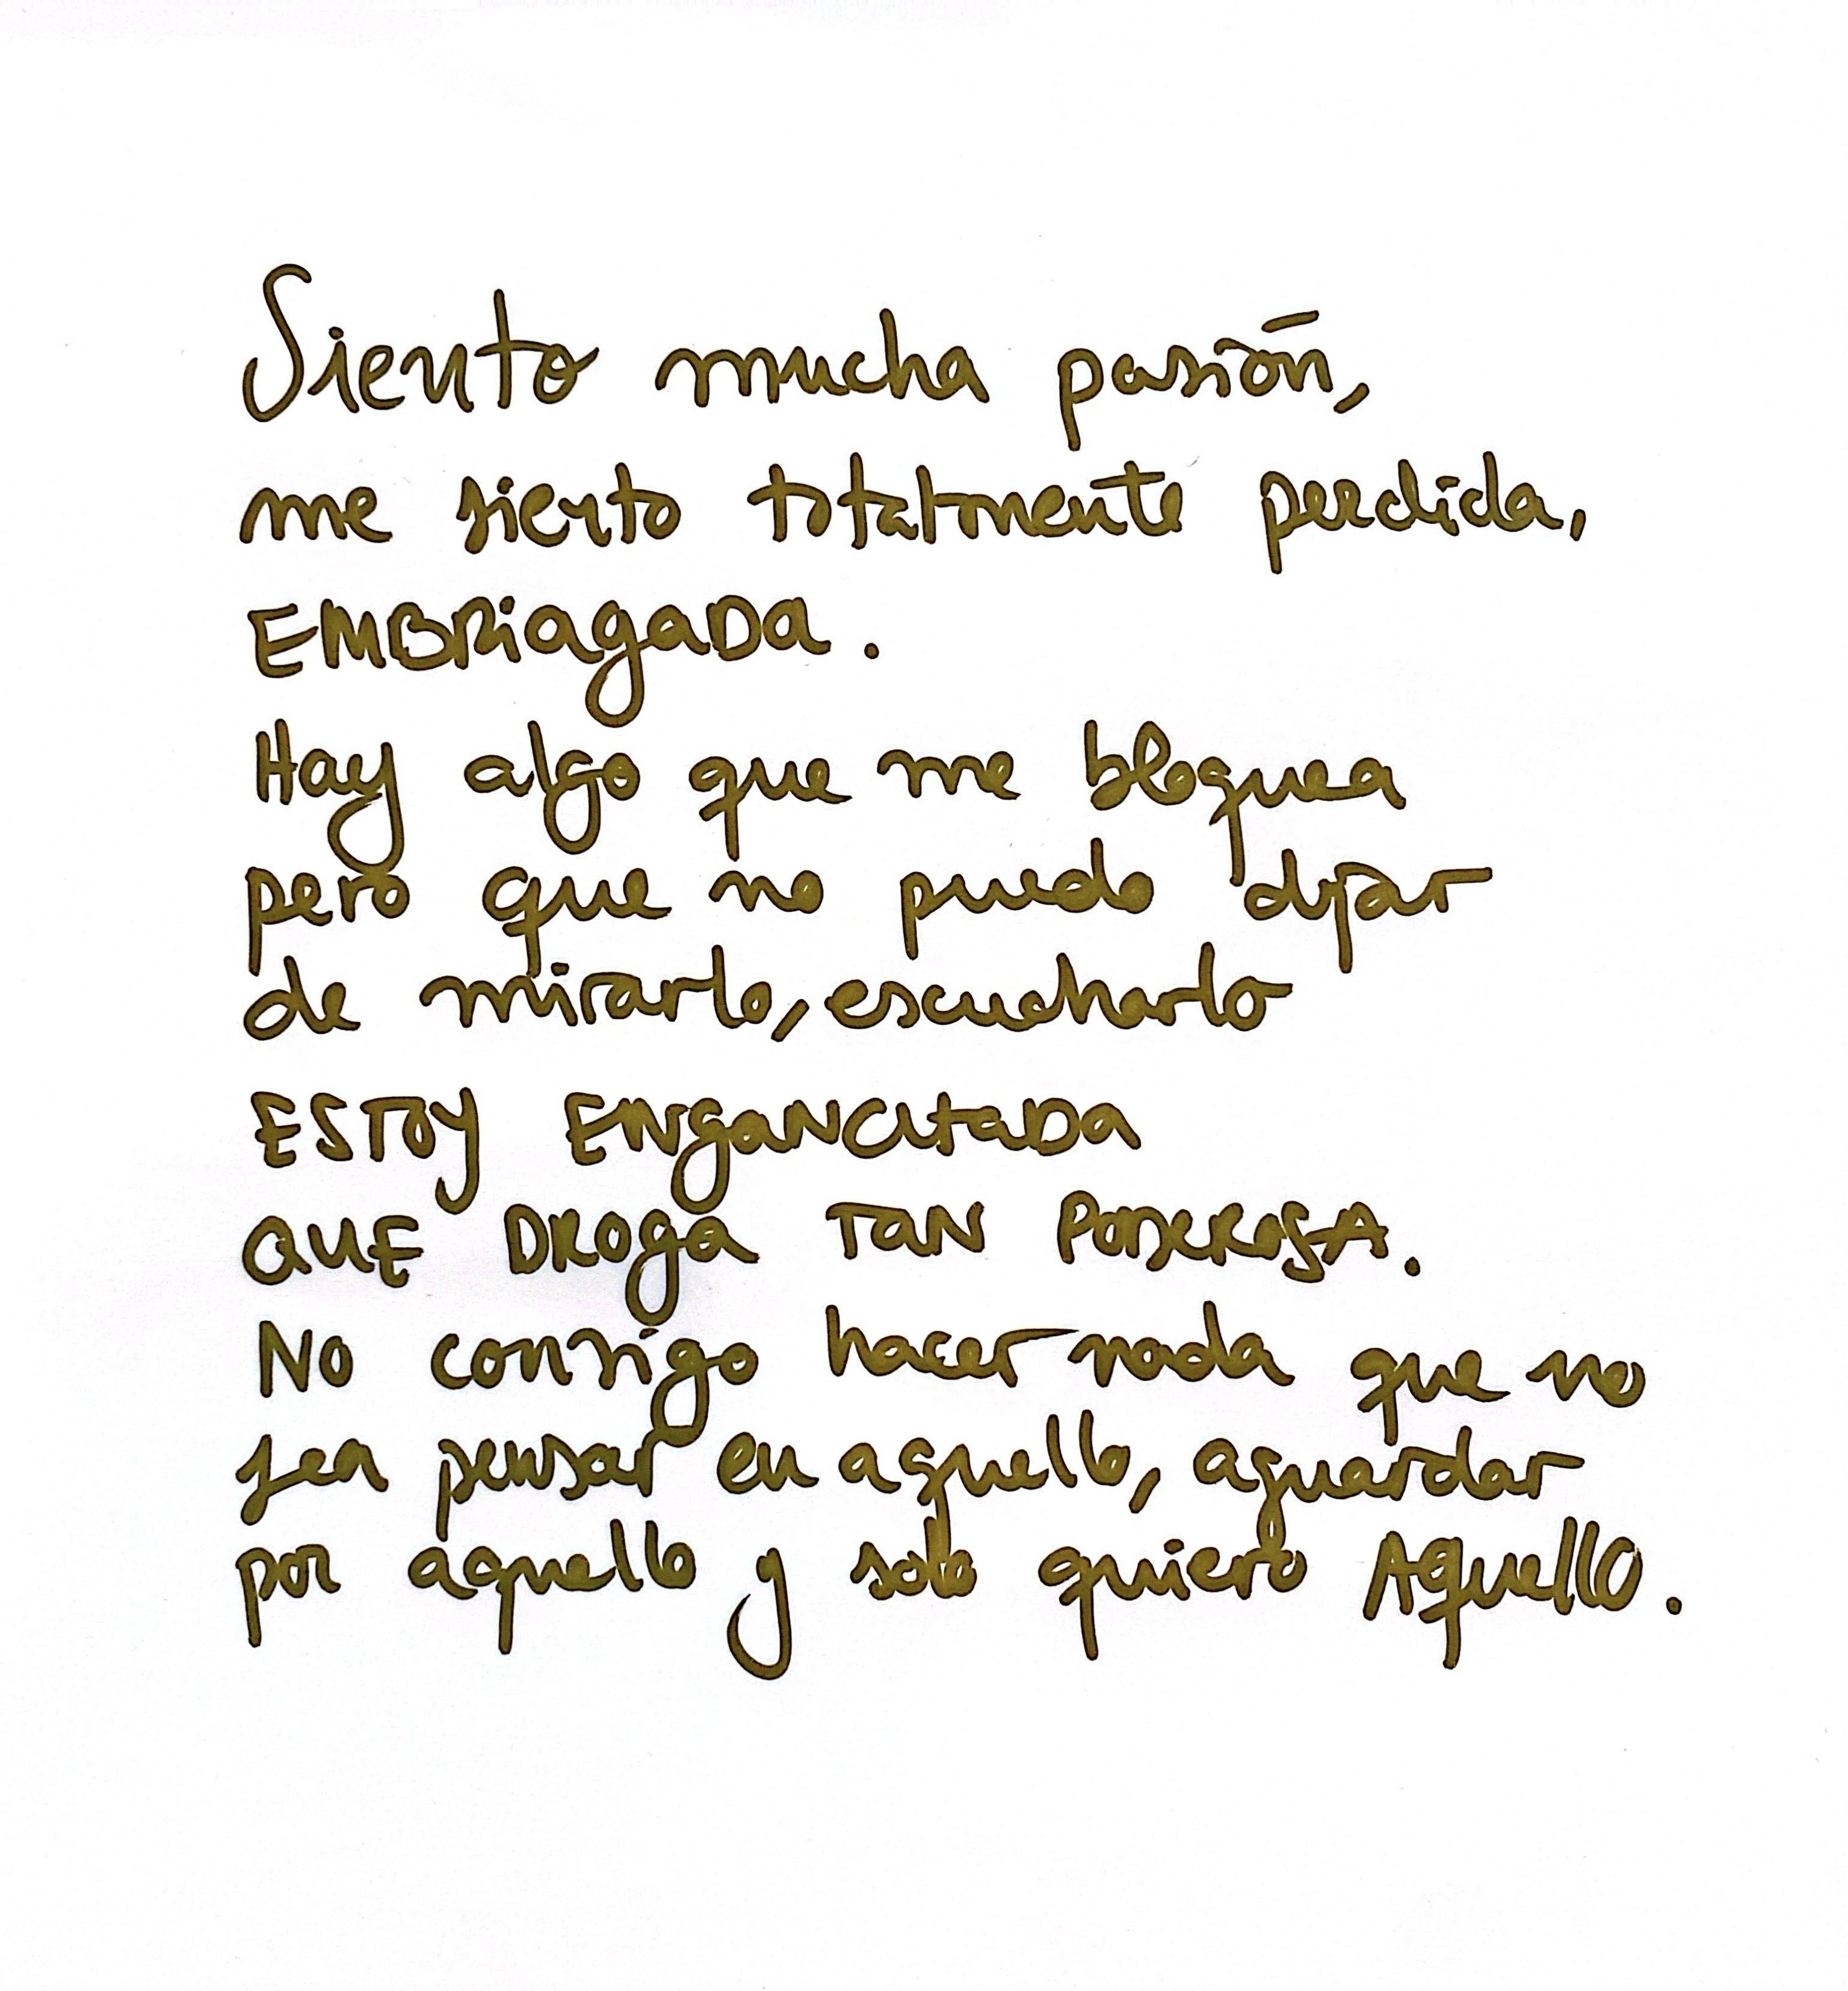 Siento mucha pasión,
me siento totalmente perdida,
EMBRiagaDa.
Hay algo que me bloquea
pero que no puedo dejar
de mirarlo, escucharlo
ESTOY ENgaNCHaDa
QUE DROga TaN PODEROSA.
No consigo hacer nada que no
sea pensar en aquello, aguardar
por aquello y solo quiero Aquello.